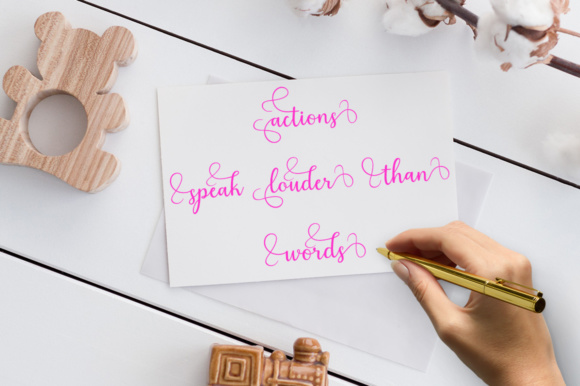 actions
speak louder than
words